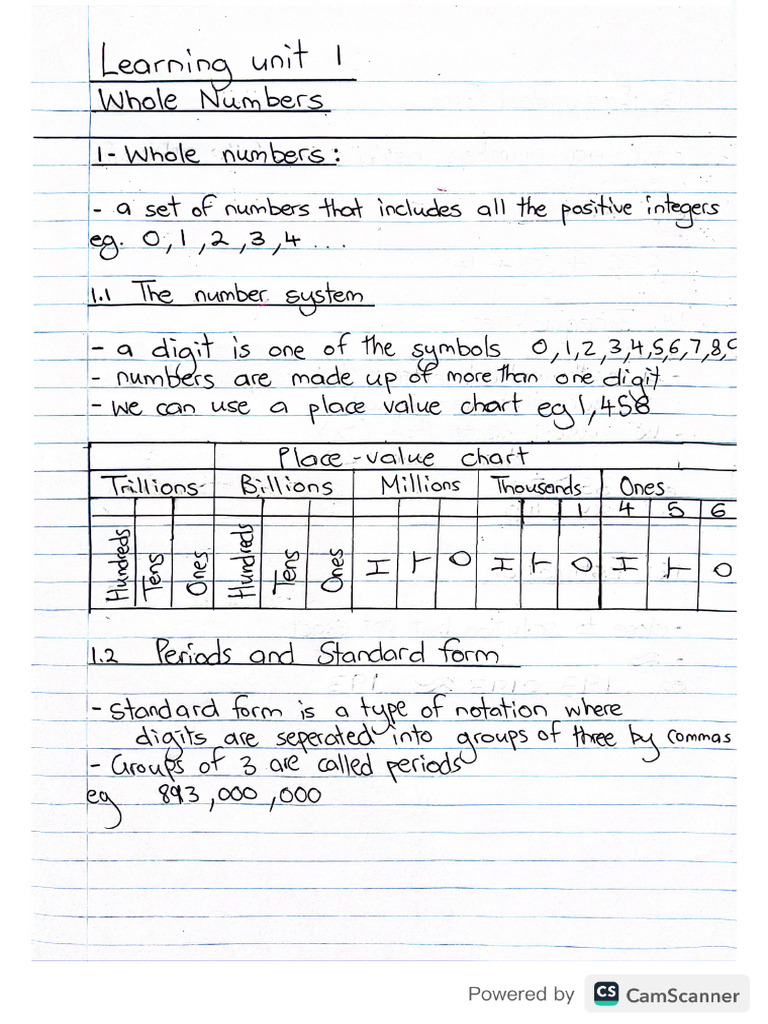 Learning unit 1
Whole Numbers
1- Whole numbers:
- a set of numbers that includes all the positive integers
eg. 0, 1, 2, 3, 4 ...
1.1 The number system
- a digit is one of the symbols 0,1,2,3,4,5,6,7,8,9
- numbers are made up of more than one digit
- we can use a place value chart eg 1,456
Place-value chart
Trillions Billions Millions Thousands Ones
1 4 5 6
Hundreds Tens Ones Hundreds Tens Ones H T O H T O H T O
1.2 Periods and Standard form
- standard form is a type of notation where
digits are seperated into groups of three by commas
- Groups of 3 are called periods
eg 893,000,000
Powered by CS CamScanner